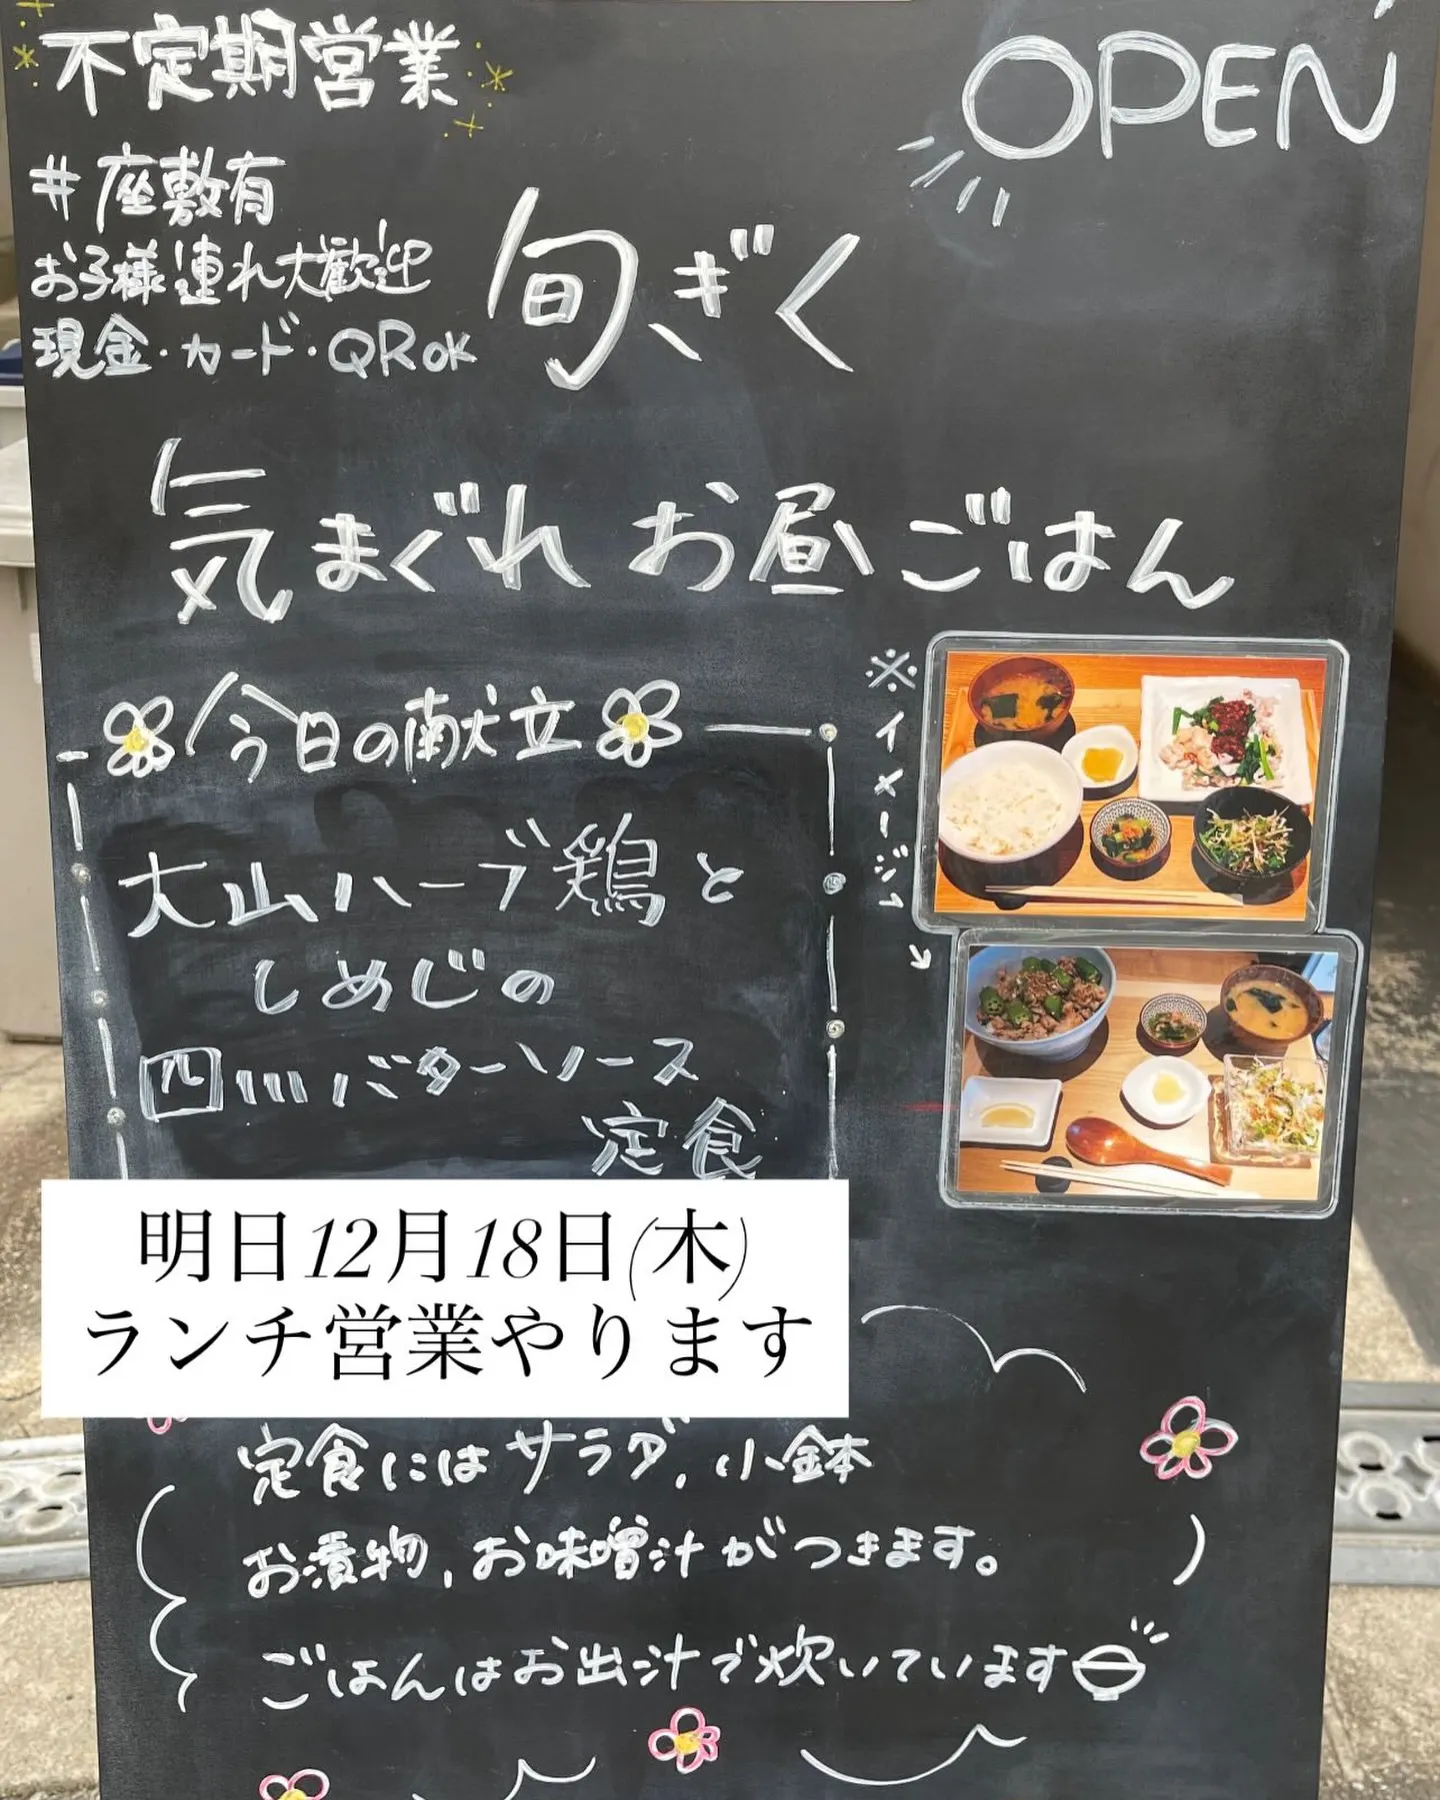 不定期営業
OPEN
#座敷有
お子様連れ大歓迎
現金・カード・QR OK
旬ぎく
気まぐれ お昼ごはん
今日の献立
※イメージ
大山ハーブ鶏と
しめじの
四川バターソース
定食
明日12月18日(木)
ランチ営業やります
定食にはサラダ、小鉢
お漬物、お味噌汁がつきます。
ごはんはお出汁で炊いています